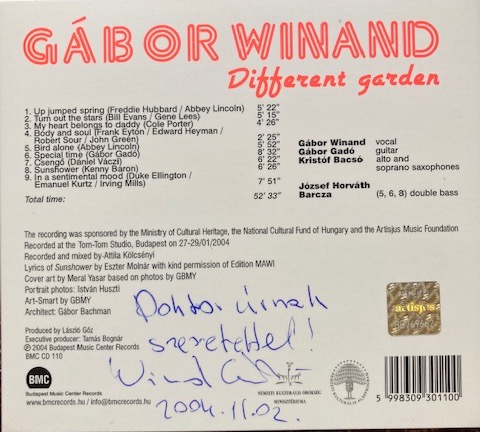 GÁBOR WINAND
Different garden
1. Up jumped spring (Freddie Hubbard / Abbey Lincoln) 5' 22"
2. Turn out the stars (Bill Evans / Gene Lees) 5' 15"
3. My heart belongs to daddy (Cole Porter) 4' 26"
4. Body and soul (Frank Eyton / Edward Heyman /
Robert Sour / John Green) 2' 25"
5. Bird alone (Abbey Lincoln) 5' 52"
6. Special time (Gábor Gadó) 8' 32"
7. Csengő (Dániel Váczi) 6' 22"
8. Sunshower (Kenny Baron) 6' 26"
9. In a sentimental mood (Duke Ellington /
Emanuel Kurtz / Irving Mills) 7' 51"
Total time: 52' 33"
Gábor Winand vocal
Gábor Gadó guitar
Kristóf Bacsó alto and
soprano saxophones
József Horváth
Barcza (5, 6, 8) double bass
The recording was sponsored by the Ministry of Cultural Heritage, the National Cultural Fund of Hungary and the Artisjus Music Foundation
Recorded at the Tom-Tom Studio, Budapest on 27-29/01/2004
Recorded and mixed by Attila Kölcsényi
Lyrics of Sunshower by Eszter Molnár with kind permission of Edition MAWI
Cover art by Meral Yasar based on photos by GBMY
Portrait photos: István Huszti
Art-Smart by GBMY
Architect: Gábor Bachman
Produced by László Gőz
Executive producer: Tamás Bognár
℗ 2004 Budapest Music Center Records
BMC CD 110
Doktor úrnak
szeretettel!
2004.11.02.
artisjus
BMC
Budapest Music Center Records
www.bmcrecords.hu / info@bmcrecords.hu
NEMZETI KULTURÁLIS ÖRÖKSÉG
MINISZTÉRIUMA
5 998309 301100